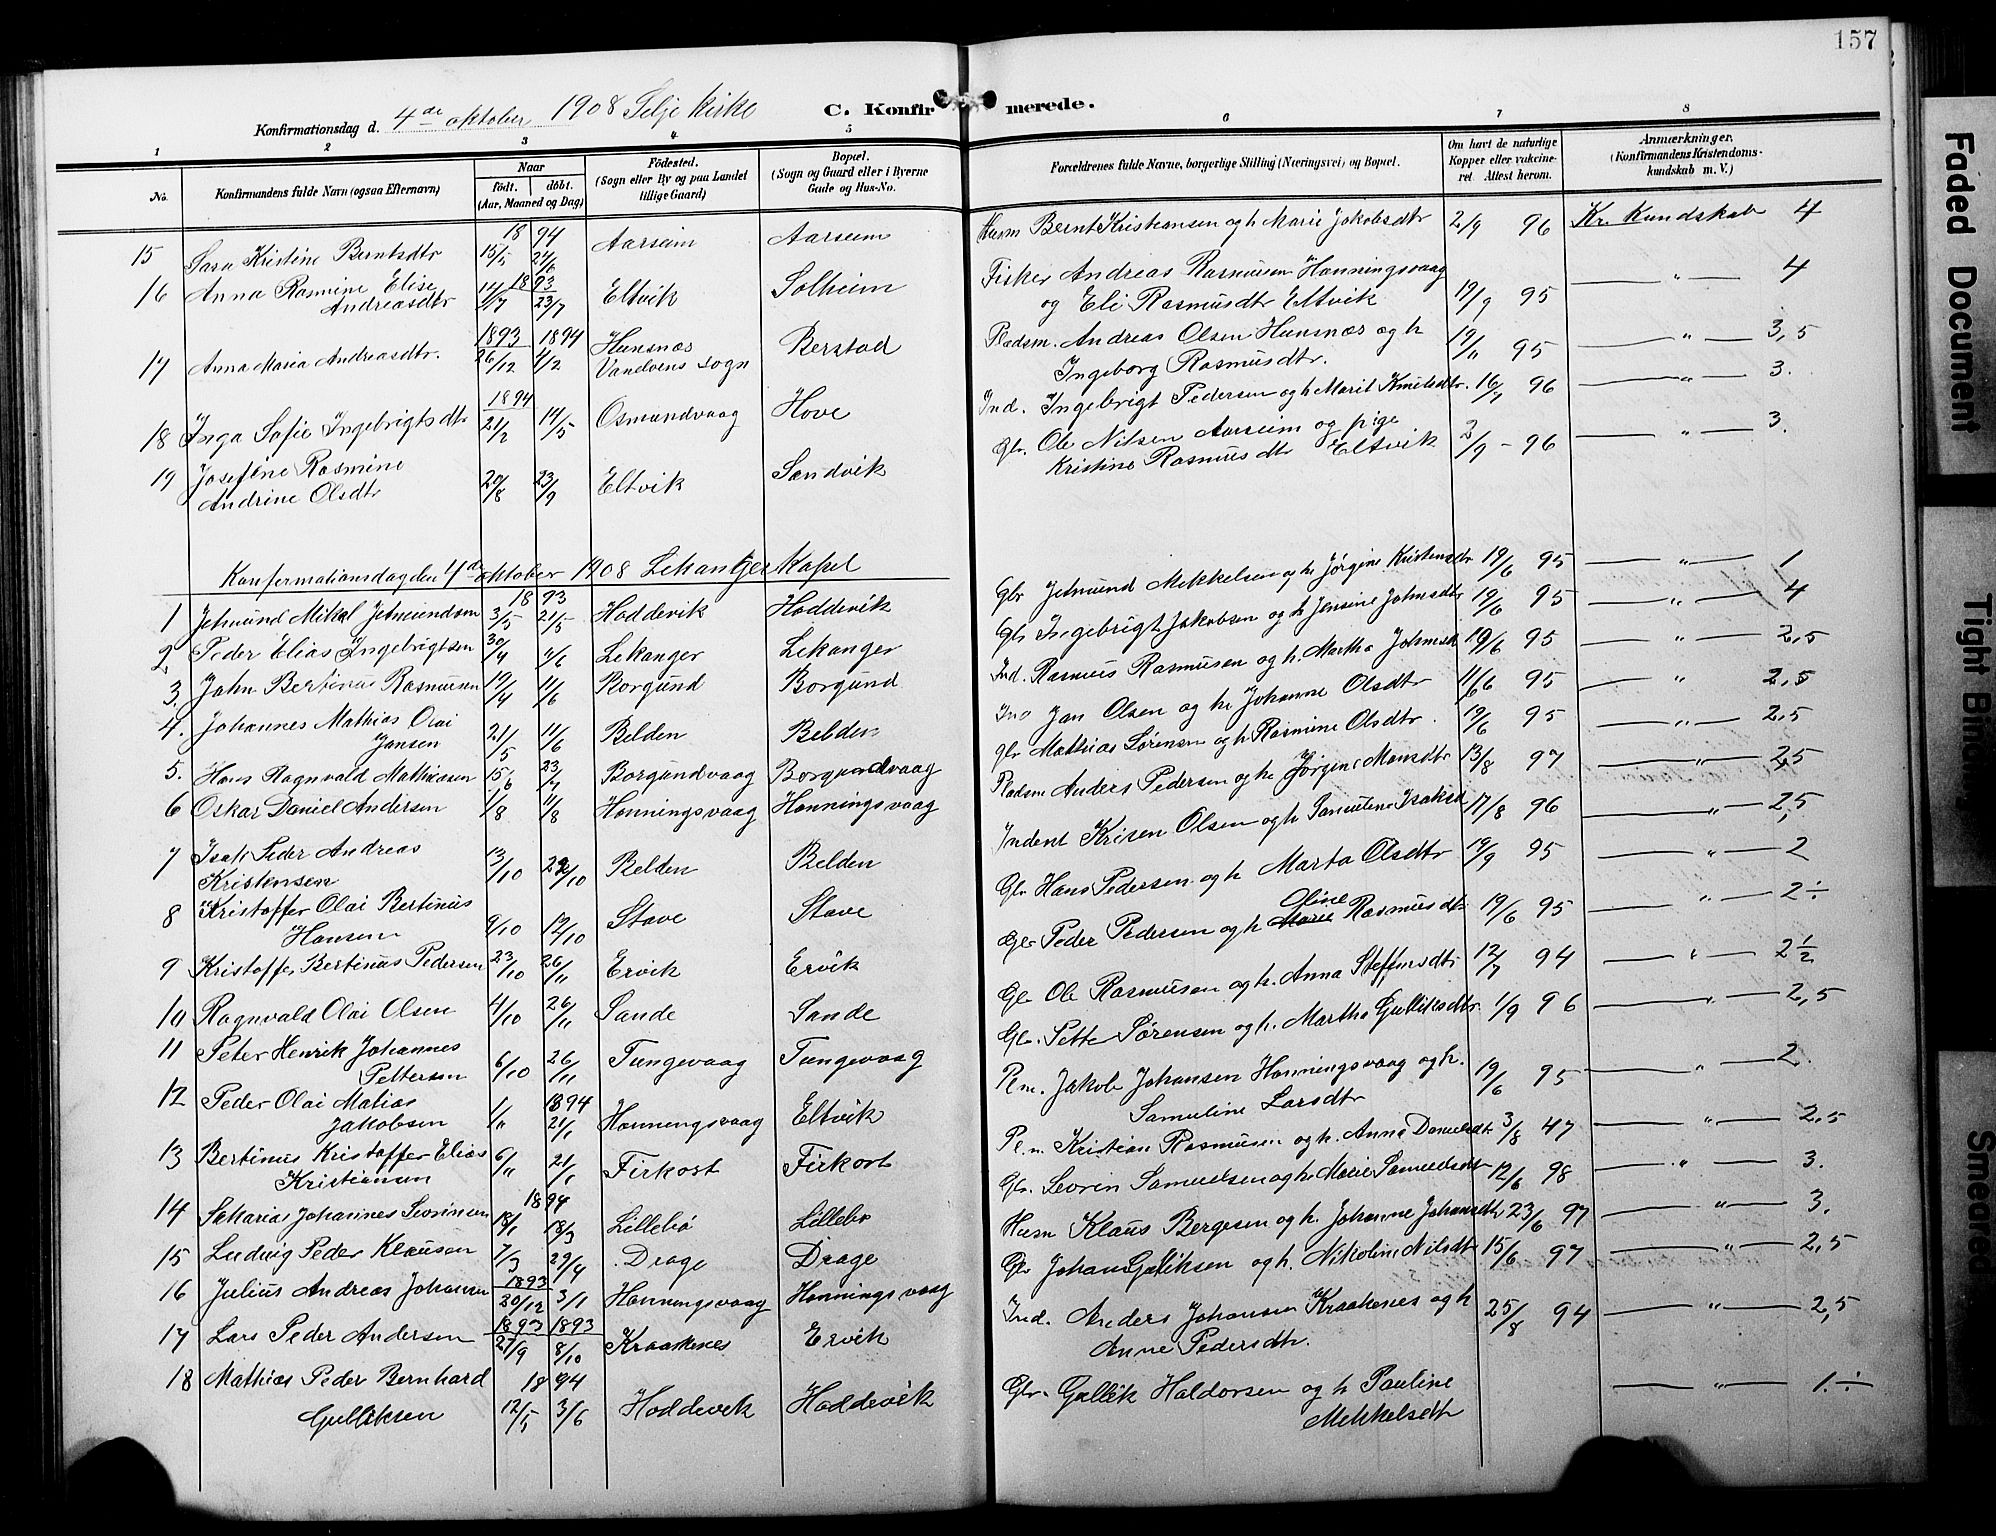 157
C. Konfirmerede.
Konfirmationsdag d. 4de oktober 1908 Selje kirke
1 2 3 4 5 6 7 8
No. Konfirmandens fulde Navn (ogsaa Efternavn) Naar födt. döbt. (Aar, Maaned og Dag) Födested. (Sogn eller By og paa Landet tillige Gaard) Bopæl. (Sogn og Gaard eller i Byerne Gade og Hus-No. Forældrenes fulde Navne, borgerlige Stilling (Næringsvei) og Bopæl. Om havt de naturlige Kopper eller vakcineret. Attest herom. Anmærkninger. (Konfirmandens Kristendomskundskab m. V.)
18 94
15 Sara Kristine Berntsdtr 15/5 24/6 Aarseim Aarseim Husm Bernt Kristiansen og h Marie Jakobsdtr 2/9 96 Kr. Kundskab 4
18 93
16 Anna Rasmine Elise Andreasdtr 23/7 Eltvik Solheim Fisker Andreas Rasmusen Honningsvaag
og Eli Rasmusdtr Eltvik 19/9 95 — " — 4
1893 1894
17 Anna Maria Andreasdtr. 26/12 4/2 Hunsnæs Vandvens sogn Berstad Pladsm. Andreas Olsen Hunsnæs og h
Ingeborg Rasmusdtr. 19/11 95 — " — 3,5
1894
18 Inga Sofie Ingebrigtsdtr 21/2 14/5 Osmundvaag Hove Ind. Ingebrigt Pedersen og h Marit Knutsdtr. 16/7 96 — " — 3.
19 Josefine Rasmine
Andrine Olsdtr 20/8 23/9 Eltvik Sandvik Gbr. Ole Nilsen Aarseim og pige
Kristine Rasmusdtr Eltvik 2/9 - 96 — " — 3.
Konfermationsdag den 4de oktober 1908 Lekanger Kapel
18 93
1 Jetmund Mikal Jetmundsen 3/5 21/5 Hoddevik Hoddevik Gbr Jetmund Mekkelsen og h Jørgine Kristensdtr 19/6 95 — " — 1
2 Peder Elias Ingebrigtsen 30/4 11/6 Lekanger Lekanger Gbr Ingebrigt Jakobsen og h Jensine Johnsdtr 19/6 95 — " — 4
3. John Bertinus Rasmusen 19/4 11/6 Borgund Borgund Ind. Rasmus Rasmusen og h. Martha Johnsdt 19/6 95 — " — 2,5
4. Johannes Mathias Olai
Jansen 21/5 11/6 Belden Belden Ind Jan Olsen og h Johanne Olsdtr 11/6 95 — " — 2,5
5. Hans Ragnvald Mathiasen 15/6 23/7 Borgundvaag Borgundvaag Gbr Mathias Sørensen og h Rasmine Olsdtr. 19/6 95 — " — 2,5
6 Oskar Daniel Andersen 1/8 11/8 Honningsvaag Honningsvaag Pladsm Anders Pedersen og h Jørgine Monsdtr 13/8 97 — " — 2,5
7 Isak Peder Andreas
Kristensen 13/10 29/10 Belden Belden Indent Krisen Olsen og h Samuline Isaksd 17/8 96 — " — 2,5
8 Kristoffer Olai Bertinus
Hansen 9/10 12/10 Stave Stave Gbr Hans Pedersen og h Marta Olsdtr 19/9 95 — " — 2
9 Kristoffer Bertinus Pedersen 23/10 26/11 Ervik Ervik Gbr Peder Pedersen og h Oline Rasmusdtr 19/6 95 — " — 2 ÷
10 Ragnvald Olai Olsen 4/10 26/11 Sande Sande Gbr Ole Rasmusen og h. Anna Steffensdtr 12/7 94 — " — 2 1/2
11 Peter Henrik Johannes
Pettersen 6/10 26/11 Tungevaag Tungevaag Gbr. Pette Sørensen og h. Martha Gulliksdtr. 1/9 96 — " — 2,5
12 Peder Olai Matias
Jakobsen 1/11 1894 21/1 Honningsvaag Eltvik Plm. Jakob Johansen Honningsvaag og h.
Samuline Larsdtr 19/6 95 — " — 2
13 Bertinus Kristoffer Elias
Kristiansen 6/11 21/1 Firkost Firkost Plm. Kristian Rasmusen og h. Anna Danielsdtr 3/8 47 — " — 2,5
18 94
14 Sakarias Johannes Sevrinsen 18/1 18/3 Lillebø Lillebø Gbr. Sevrin Samuelsen og h Marie Samuelsdtr 12/6 98 — " — 3.
15 Ludvig Peder Klausen 7/3 29/4 Drage Drage Husm Klaus Bergesen og h. Johanne Johansdtr 23/6 97 — " — 3.
1893
16 Julius Andreas Johansen 20/12 3/1 Honningsvaag Honningsvaag Gbr Johan Gulliksen og h. Nikoline Nilsdtr 15/6 97 — " — 2,5
1893 1893
17 Lars Peder Andersen 27/9 8/10 Kraakenes Ervik Ind. Anders Johansen Kraakenes og h
Anne Pedersdtr. 25/8 94 — " — 2,5
18 94
18 Mathias Peder Bernhard
Gulliksen 12/5 3/6 Hoddevik Hoddevik Gbr. Gullik Haldorsen og h Pauline
Mekkelsdtr — " — 1. ÷
Faded Document
Tight Binding
Smeared